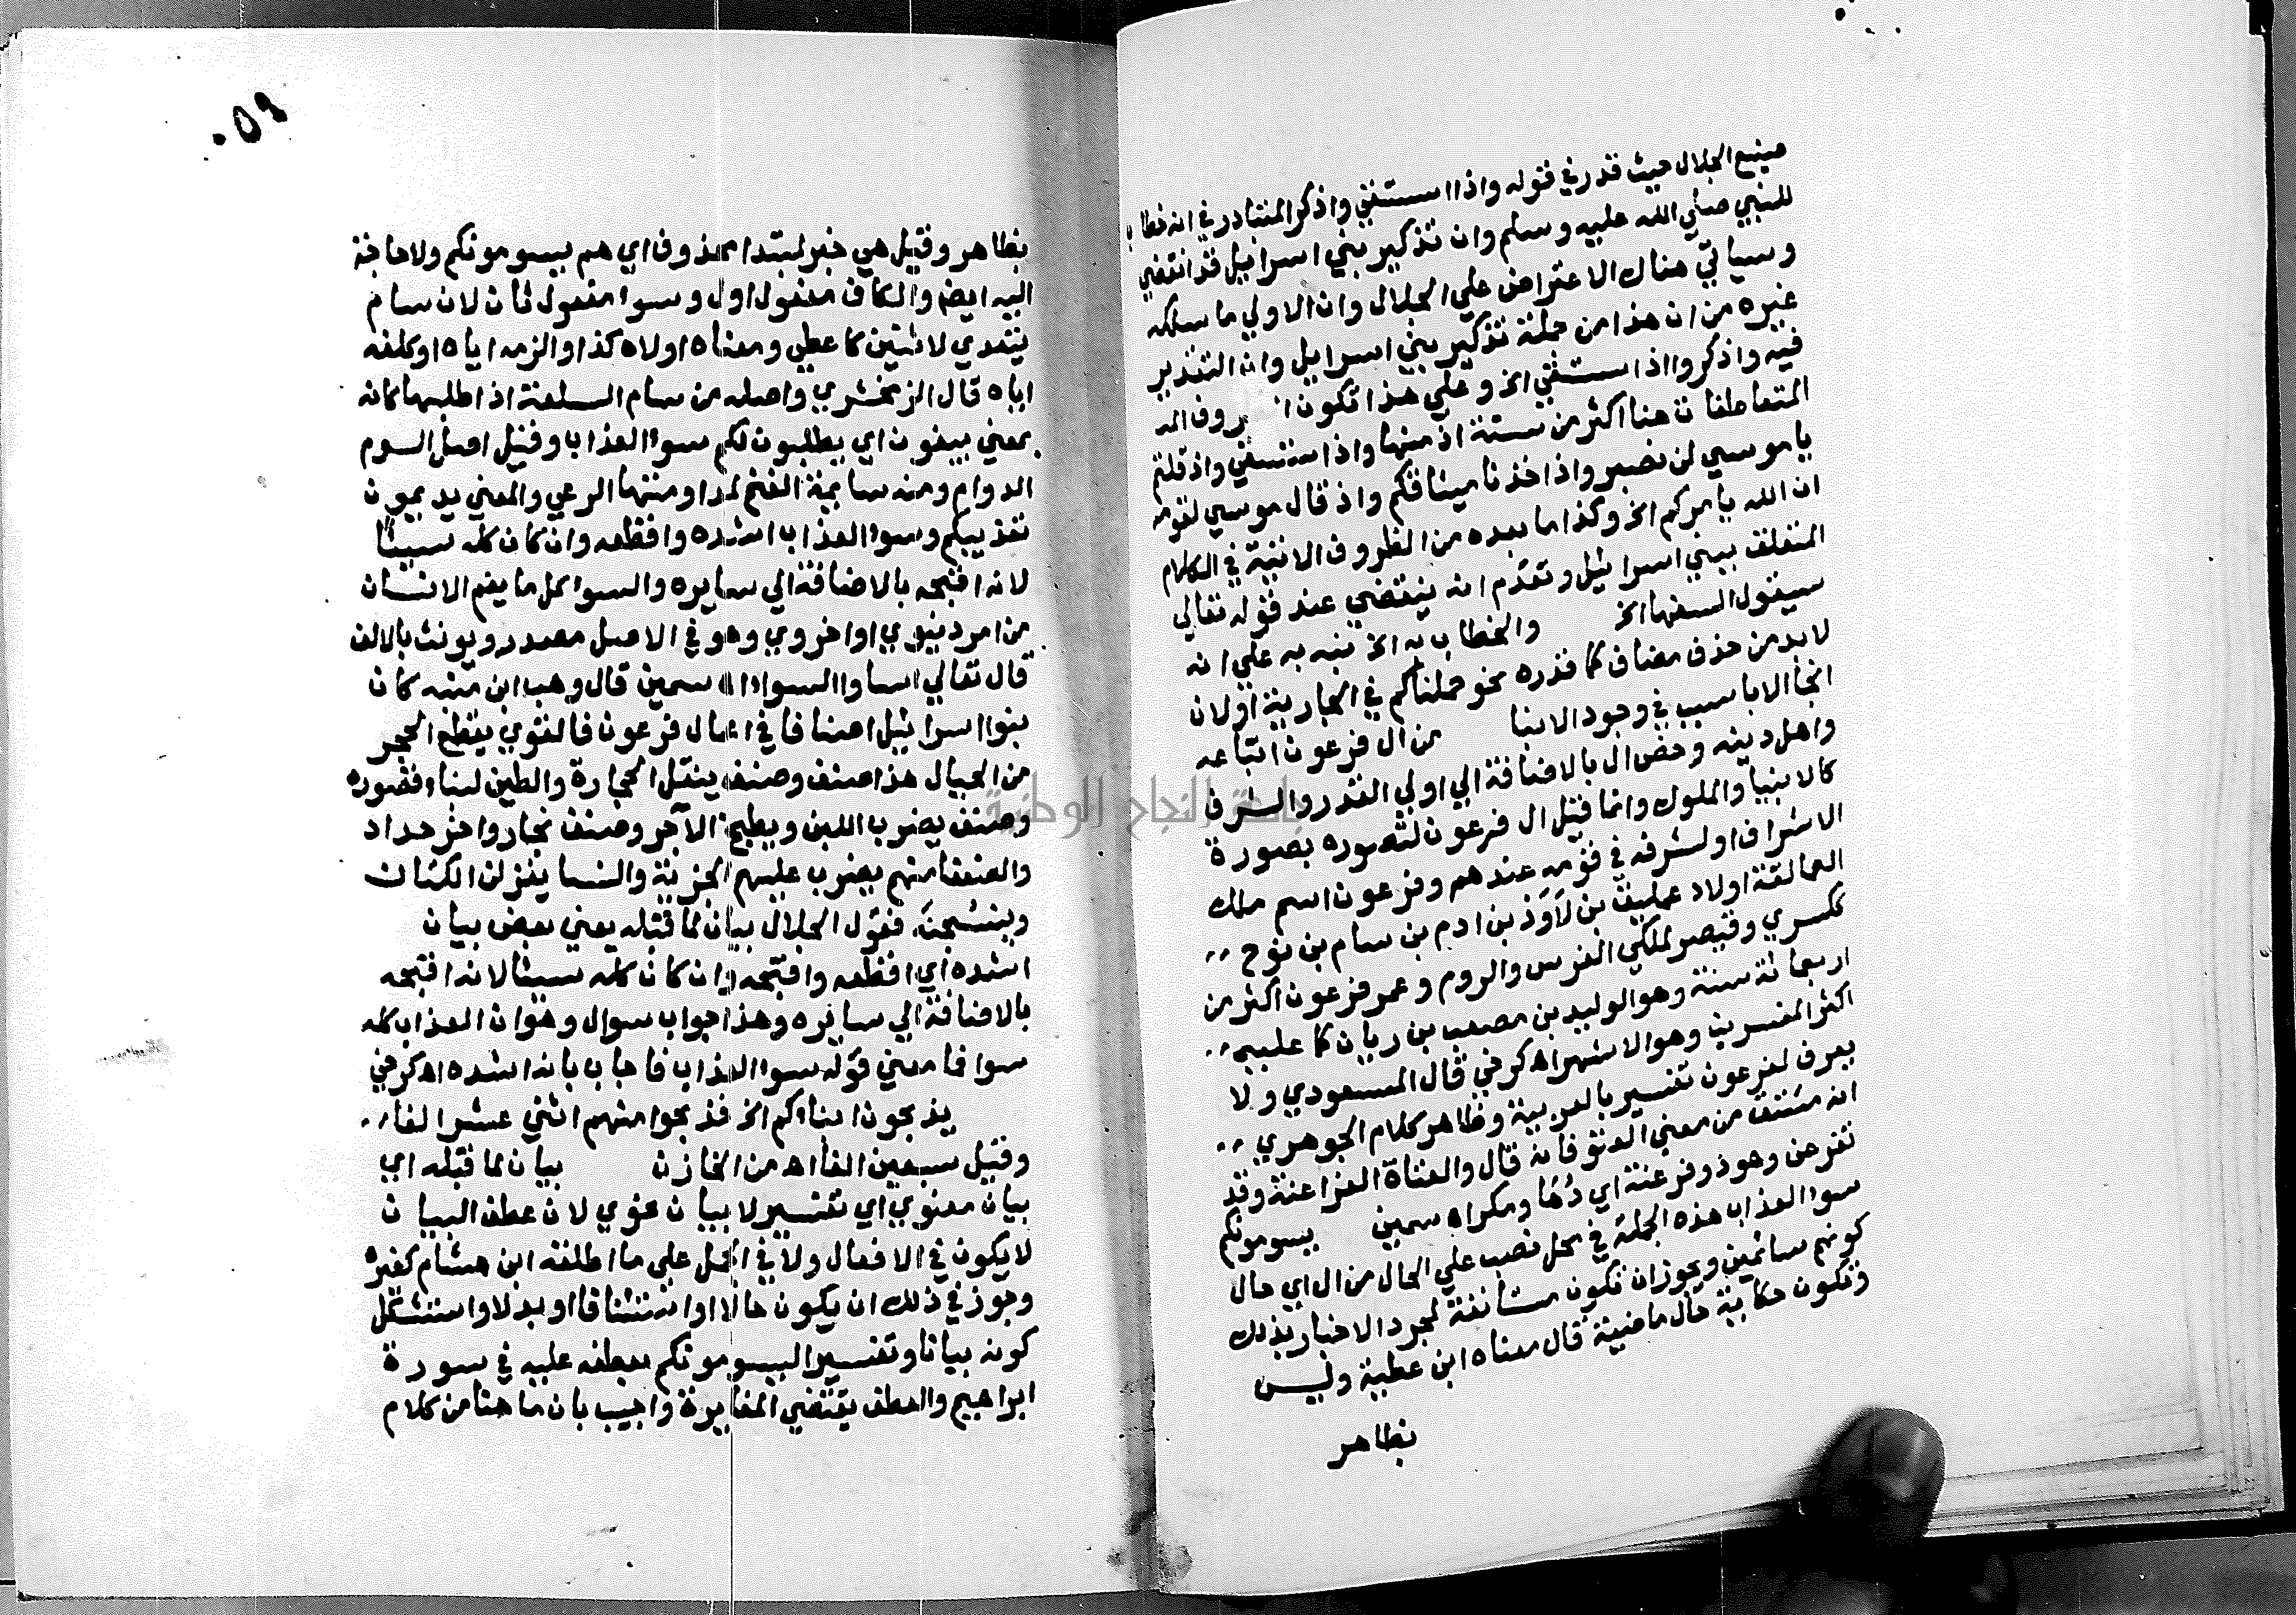 صنيع الجلال حيث قدر في قوله واذا استسقي واذكر المتبادر في انه خطابا
للنبي صلي الله عليه وسلم وان تذكير بني اسرايل قد انقضي
وسياتي هناك الاعتراض علي الجلال وان الاولي ما سلكه
غيره من ان هذا من جملة تذكير بني اسرايل وان التقدير
فيه واذكروا اذ استسقي الخ وعلي هذا تكون الظروف الـ
المتعاطفات هنا اكثر من ستة اذ منها واذ استسقي واذ قلتم
يا موسي لن نصبر واذ اخذنا ميثاقكم واذ قال موسي لقومه
ان الله يامركم الخ وكذا ما بعده من الظروف الاتية في الكلام
المتعلق ببني اسرائيل وتقدم انه ينقضي عند قوله تعالي
سيقول السفها الخ والخطاب به الخ نبه به علي انه
لابد من حذف مضاف كما قدره نحو حملناكم في الجارية او لان
انجأ الابا سبب في وجود الابنا من ال فرعون اتباعه
واهل دينه وخص ال بالاضافة الي اولي القدر والشرف
كالانبيا والملوك وانما قيل ال فرعون لتصوره بصورة
الاشراف او لشرفه في قومه عندهم وفرعون اسم ملك
العمالقة اولاد عمليق بن لاوَذ بن ادم بن سام بن نوح
ككسري وقيصر لملكي الفرس والروم وعمر فرعون اكثر من
اربعمائة سنة وهو الوليد بن مصعب بن ريان كما عليه
اكثر المفسرين وهو الاشهر اهـ كرخي قال المسعودي ولا
يعرف لفرعون تفسير بالعربية وظاهر كلام الجوهري
انه مشتق من معني العتو فانه قال والعتاة الفراعنة وقد
تفرعن وهو ذو فرعنة اي دُهَا ومكر اهـ سمين يسومونكم
سوا العذاب هذه الجملة في محل نصب علي الحال من ال اي حال
كونهم سائمين ويجوز ان تكون مستأنفة لمجرد الاخبار بذلك
وتكون حكاية حال ماضية قال معناه ابن عطية وليس
بظاهر
٥٩
بظاهر وقيل هي خبر لمبتدا محذوف اي هم يسومونكم ولا حاجة
اليه ايضا والكاف مفعول اول وسوا مفعول ثان لان سام
يتعدي لاثنين كاعطي ومعناه اولاه كذا والزمه اياه او كلفه
اياه قال الزمخشري واصله من سام السلعة اذا طلبها كانه
بمعني يبغون اي يطلبون لكم سوا العذاب وقيل اصل السوم
الدوام ومنه سايمة الغنم لمداومتها الرعي والمعني يديمون
تعذيبكم وسوا العذاب اشده وافظعه وان كان كله سيئا
لانه اقبحه بالاضافة الي سايره والسوا كل ما يغم الانسان
من امر دنيوي او اخروي وهو في الاصل مصدر ويونث بالالف
قال تعالي اساوا السواي اهـ سمين قال وهب ابن منبه كان
بنوا اسرائيل اصنافا في اعمال فرعون فالقوي يقطع الحجر
من الجبال هذا صنف وصنف ينقل الحجارة والطين لبناء قصوره
وصنف يضرب اللبن ويطبخ الآجر وصنف نجار واخر حداد
والضعفا منهم يضرب عليهم الجزية والنسا يغزلن الكتان
وينسُجنَه فقول الجلال بيان لما قبله يعني بعض بيان
اشده اي افظعه واقبحه وان كان كله سيئا لانه اقبحه
بالاضافة الي سائره وهذا جواب سوال وهو ان العذاب كله
سوا فما معني قوله سوا العذاب فاجاب بانه اشده اهـ كرخي
يذبحون ابناءكم الخ فذبحوا منهم اثني عشر الفا
وقيل سبعين الفا اهـ من الخازن بيان لما قبله اي
بيان معنوي اي تفسير لا بيان نحوي لان عطف البيان
لا يكون في الافعال ولا في الجمل علي ما اطلقه ابن هشام كغيره
وجوز في ذلك ان يكون حالا او استئنافا او بدلا واستشكل
كونه بيانا وتفسيرا ليسومونكم بعطفه عليه في سورة
ابراهيم والعطف يقتضي المغايرة واجيب بان ما هنا من كلام
جامعة النجاح الوطنية